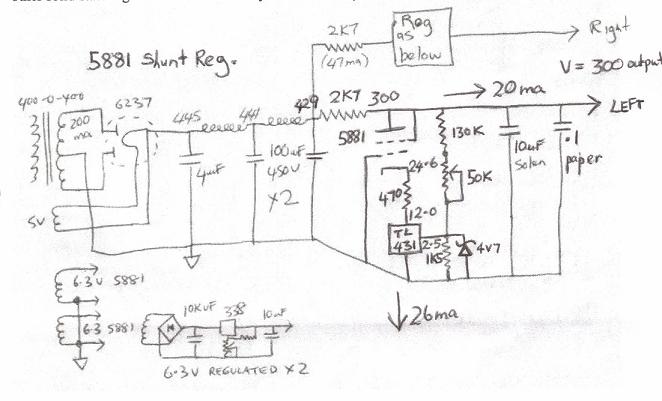 2K7
(47ma)
Reg
as
below
Right
5881 Shunt Reg.
V = 300 output
400-0-400
6237
445
441
429
2K7
300
20ma
LEFT
200
ma
5881
130K
4uF
100uF
450V
X2
24.6
50K
10uF
Solen
.1
paper
470
12.0
5V
TL
431
2.5
1K5
4V7
6.3V 5881
26ma
6.3 5881
10KuF
338
10uF
6.3V REGULATED X2